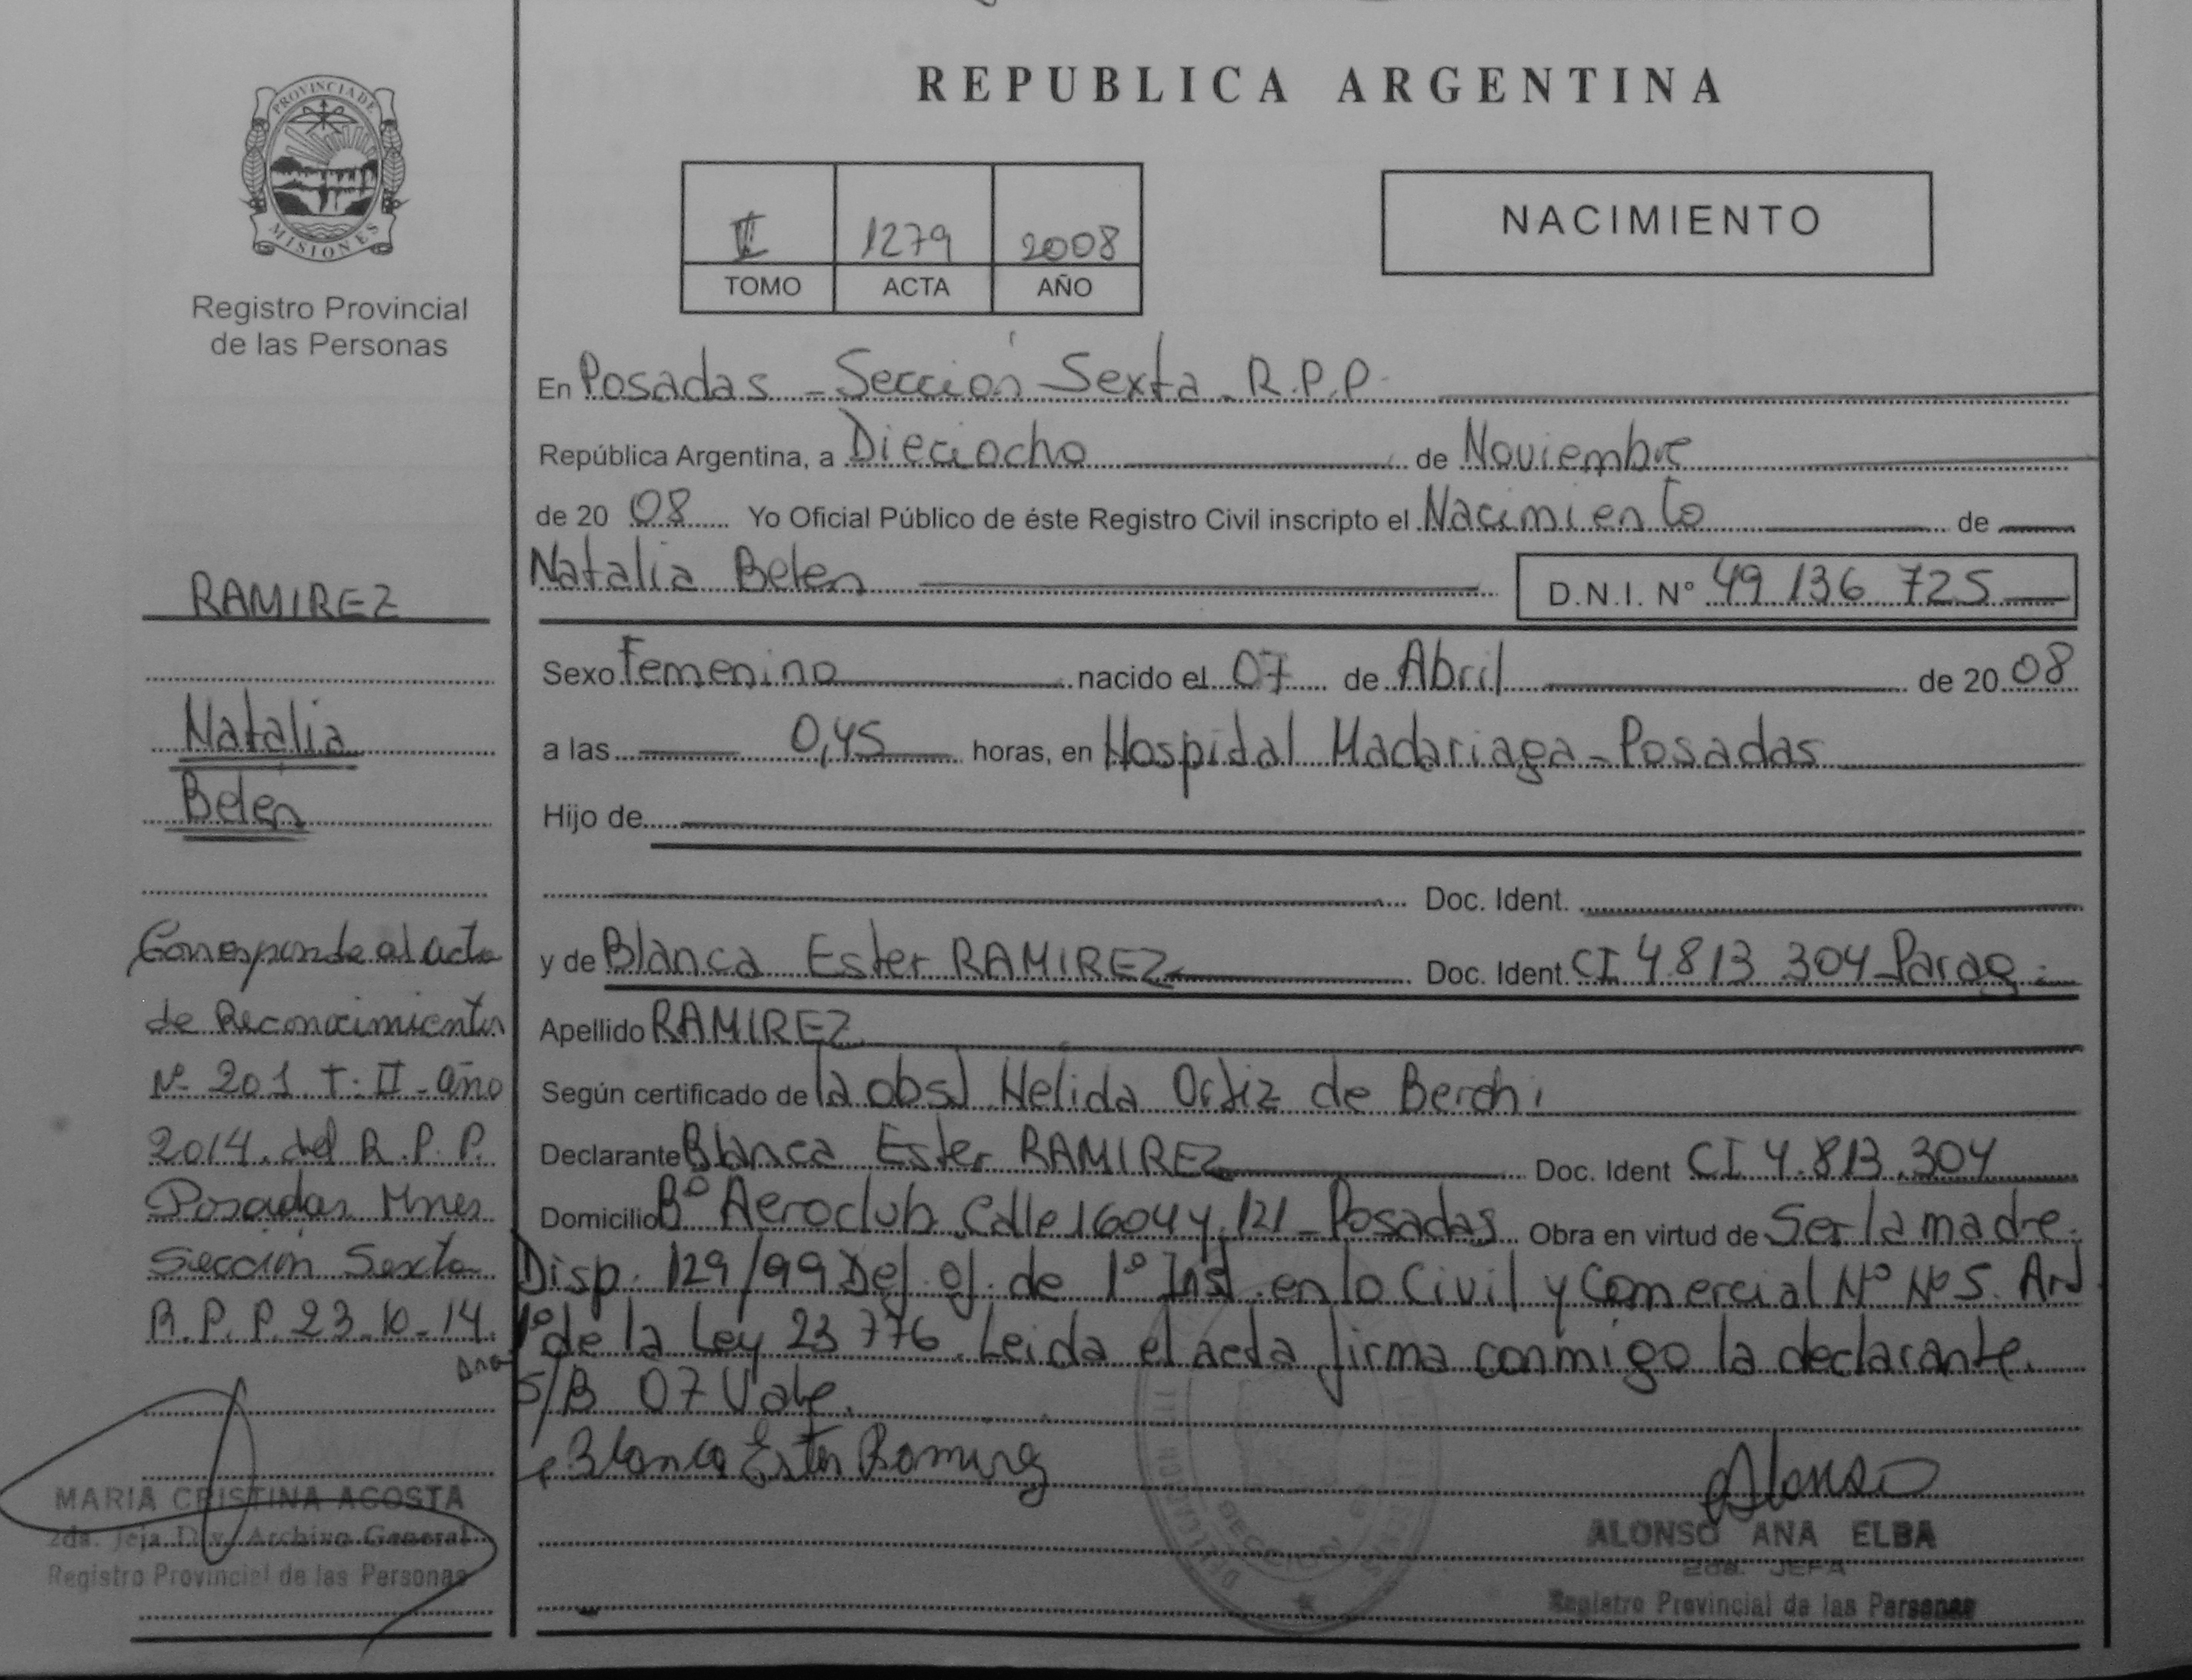 REPUBLICA ARGENTINA
PROVINCIA DE
MISIONES
Registro Provincial
de las Personas
1279 2008
TOMO ACTA AÑO
NACIMIENTO
En Posadas - Sección Sexta - R.P.P.
República Argentina, a Dieciocho de Noviembre
de 20 08 Yo Oficial Público de éste Registro Civil inscripto el Nacimiento de
Natalia Belen D.N.I. Nº 49 136 725
Sexo Femenino nacido el 07 de Abril de 20 08
a las 0,45 horas, en Hospital Madariaga - Posadas
Hijo de
Doc. Ident.
y de Blanca Ester RAMIREZ Doc. Ident. CI 4.813.304 Parag.
Apellido RAMIREZ
Según certificado de la obst Nelida Ortiz de Berchi
Declarante Blanca Ester RAMIREZ Doc. Ident CI 4.813.304
Domicilio Bº Aeroclub Calle 160 44 y 121 - Posadas Obra en virtud de Ser la madre.
Disp. 129/99 Def. of. de 1º Inst. en lo Civil y Comercial Nº Nº 5. Art
1º de la Ley 23 776. Leida el acta firma conmigo la declarante.
S/B 07 Vale.
Blanca Ester Ramirez
Alonso
ALONSO ANA ELBA
2da. JEFA
Registro Provincial de las Personas
RAMIREZ
Natalia
Belen
Corresponde al acta
de Reconocimiento
Nº 201 T. II - año
2014. del R.P.P.
Posadas Mnes
Sección Sexta
R.P.P. 23-10-14.
MARIA CRISTINA ACOSTA
2da. Jefa Div. Archivo General
Registro Provincial de las Personas